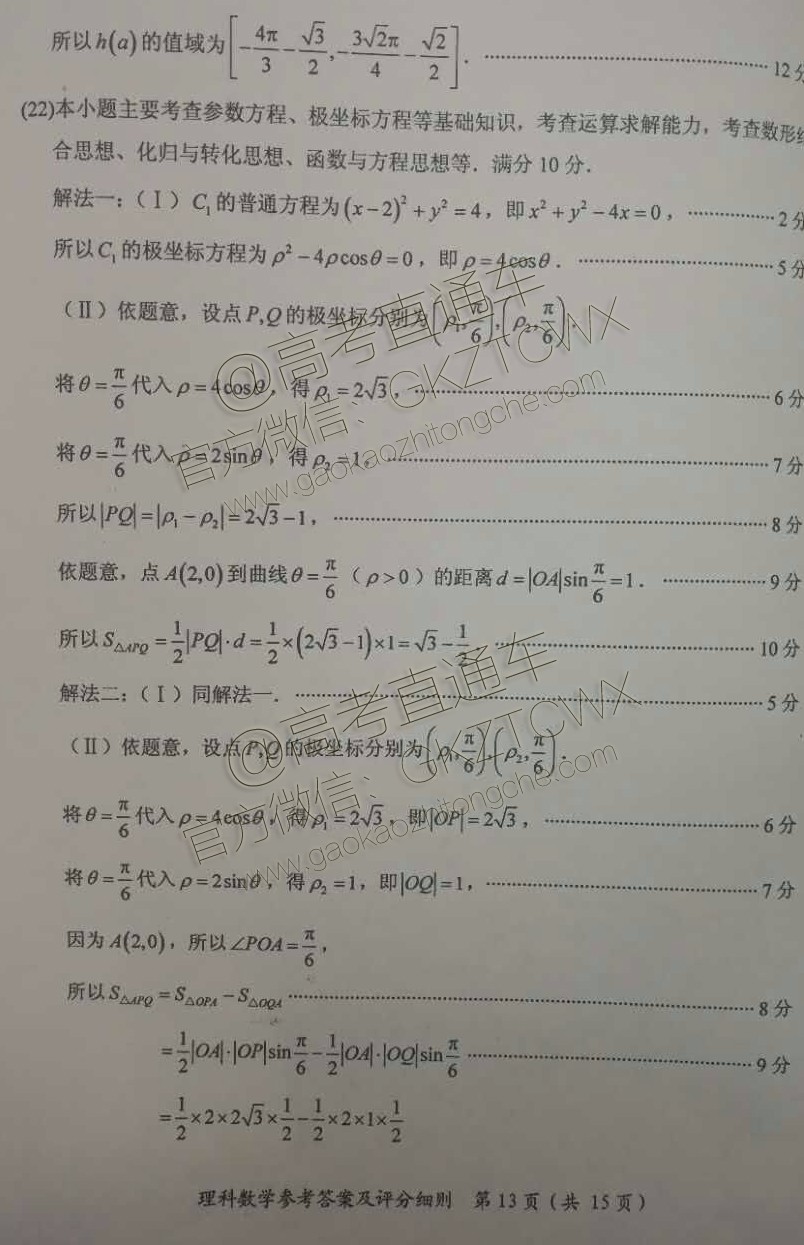 所以h(a)的值域为[-4π/3-√3/2,-3√2π/4-√2/2].……12分
(22)本小题主要考查参数方程、极坐标方程等基础知识，考查运算求解能力，考查数形结
合思想、化归与转化思想、函数与方程思想等．满分10分．
解法一：（Ⅰ）C₁的普通方程为(x-2)²+y²=4，即x²+y²-4x=0，……2分
所以C₁的极坐标方程为ρ²-4ρcosθ=0，即ρ=4cosθ．……5分
（Ⅱ）依题意，设点P,Q的极坐标分别为(ρ₁,π/6),(ρ₂,π/6).
将θ=π/6代入ρ=4cosθ，得ρ₁=2√3，……6分
将θ=π/6代入ρ=2sinθ，得ρ₂=1，……7分
所以|PQ|=|ρ₁-ρ₂|=2√3-1，……8分
依题意，点A(2,0)到曲线θ=π/6（ρ>0）的距离d=|OA|sinπ/6=1．……9分
所以S△APQ=1/2|PQ|·d=1/2×(2√3-1)×1=√3-1/2．……10分
解法二：（Ⅰ）同解法一．……5分
（Ⅱ）依题意，设点P,Q的极坐标分别为(ρ₁,π/6),(ρ₂,π/6).
将θ=π/6代入ρ=4cosθ，得ρ₁=2√3，即|OP|=2√3，……6分
将θ=π/6代入ρ=2sinθ，得ρ₂=1，即|OQ|=1，……7分
因为A(2,0)，所以∠POA=π/6，
所以S△APQ=S△OPA-S△OQA……8分
=1/2|OA|·|OP|sinπ/6-1/2|OA|·|OQ|sinπ/6……9分
=1/2×2×2√3×1/2-1/2×2×1×1/2
理科数学参考答案及评分细则 第13页（共 15页）
@高考直通车
官方微信：GKZTCWX
www.gaokaozhitongche.com
@高考直通车
官方微信：GKZTCWX
www.gaokaozhitongche.com